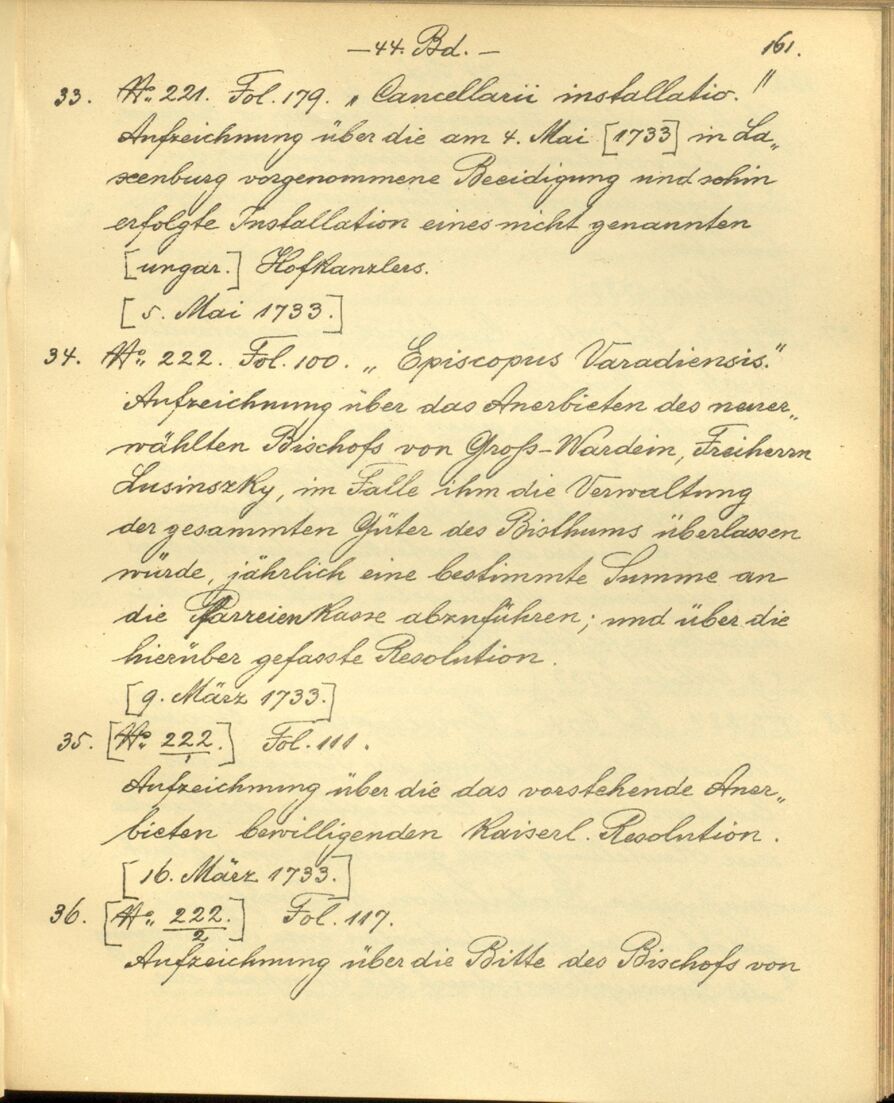 — 44. Bd. — 161.
33. No. 221. Fol. 179. „Cancellarii installatio."
Aufzeichnung über die am 4. Mai [1733] in La„
xenburg vorgenommene Beeidigung und sohin
erfolgte Installation eines nicht genannten
[ungar.] Hofkanzlers.
[5. Mai 1733.]
34. No. 222. Fol. 100. „Episcopus Varadiensis."
Aufzeichnung über das Anerbieten des neuer„
wählten Bischofs von Groß-Wardein, Freiherrn
Lusinszky, im Falle ihm die Verwaltung
der gesammten Güter des Bisthums überlassen
würde, jährlich eine bestimmte Summe an
die Pfarreienkasse abzuführen; und über die
hierüber gefasste Resolution.
[9. März 1733.]
35. [No. 222./1] Fol. 111.
Aufzeichnung über die das vorstehende Aner„
bieten bewilligenden Kaiserl. Resolution.
[16. März 1733.]
36. [No. 222./2] Fol. 117.
Aufzeichnung über die Bitte des Bischofs von